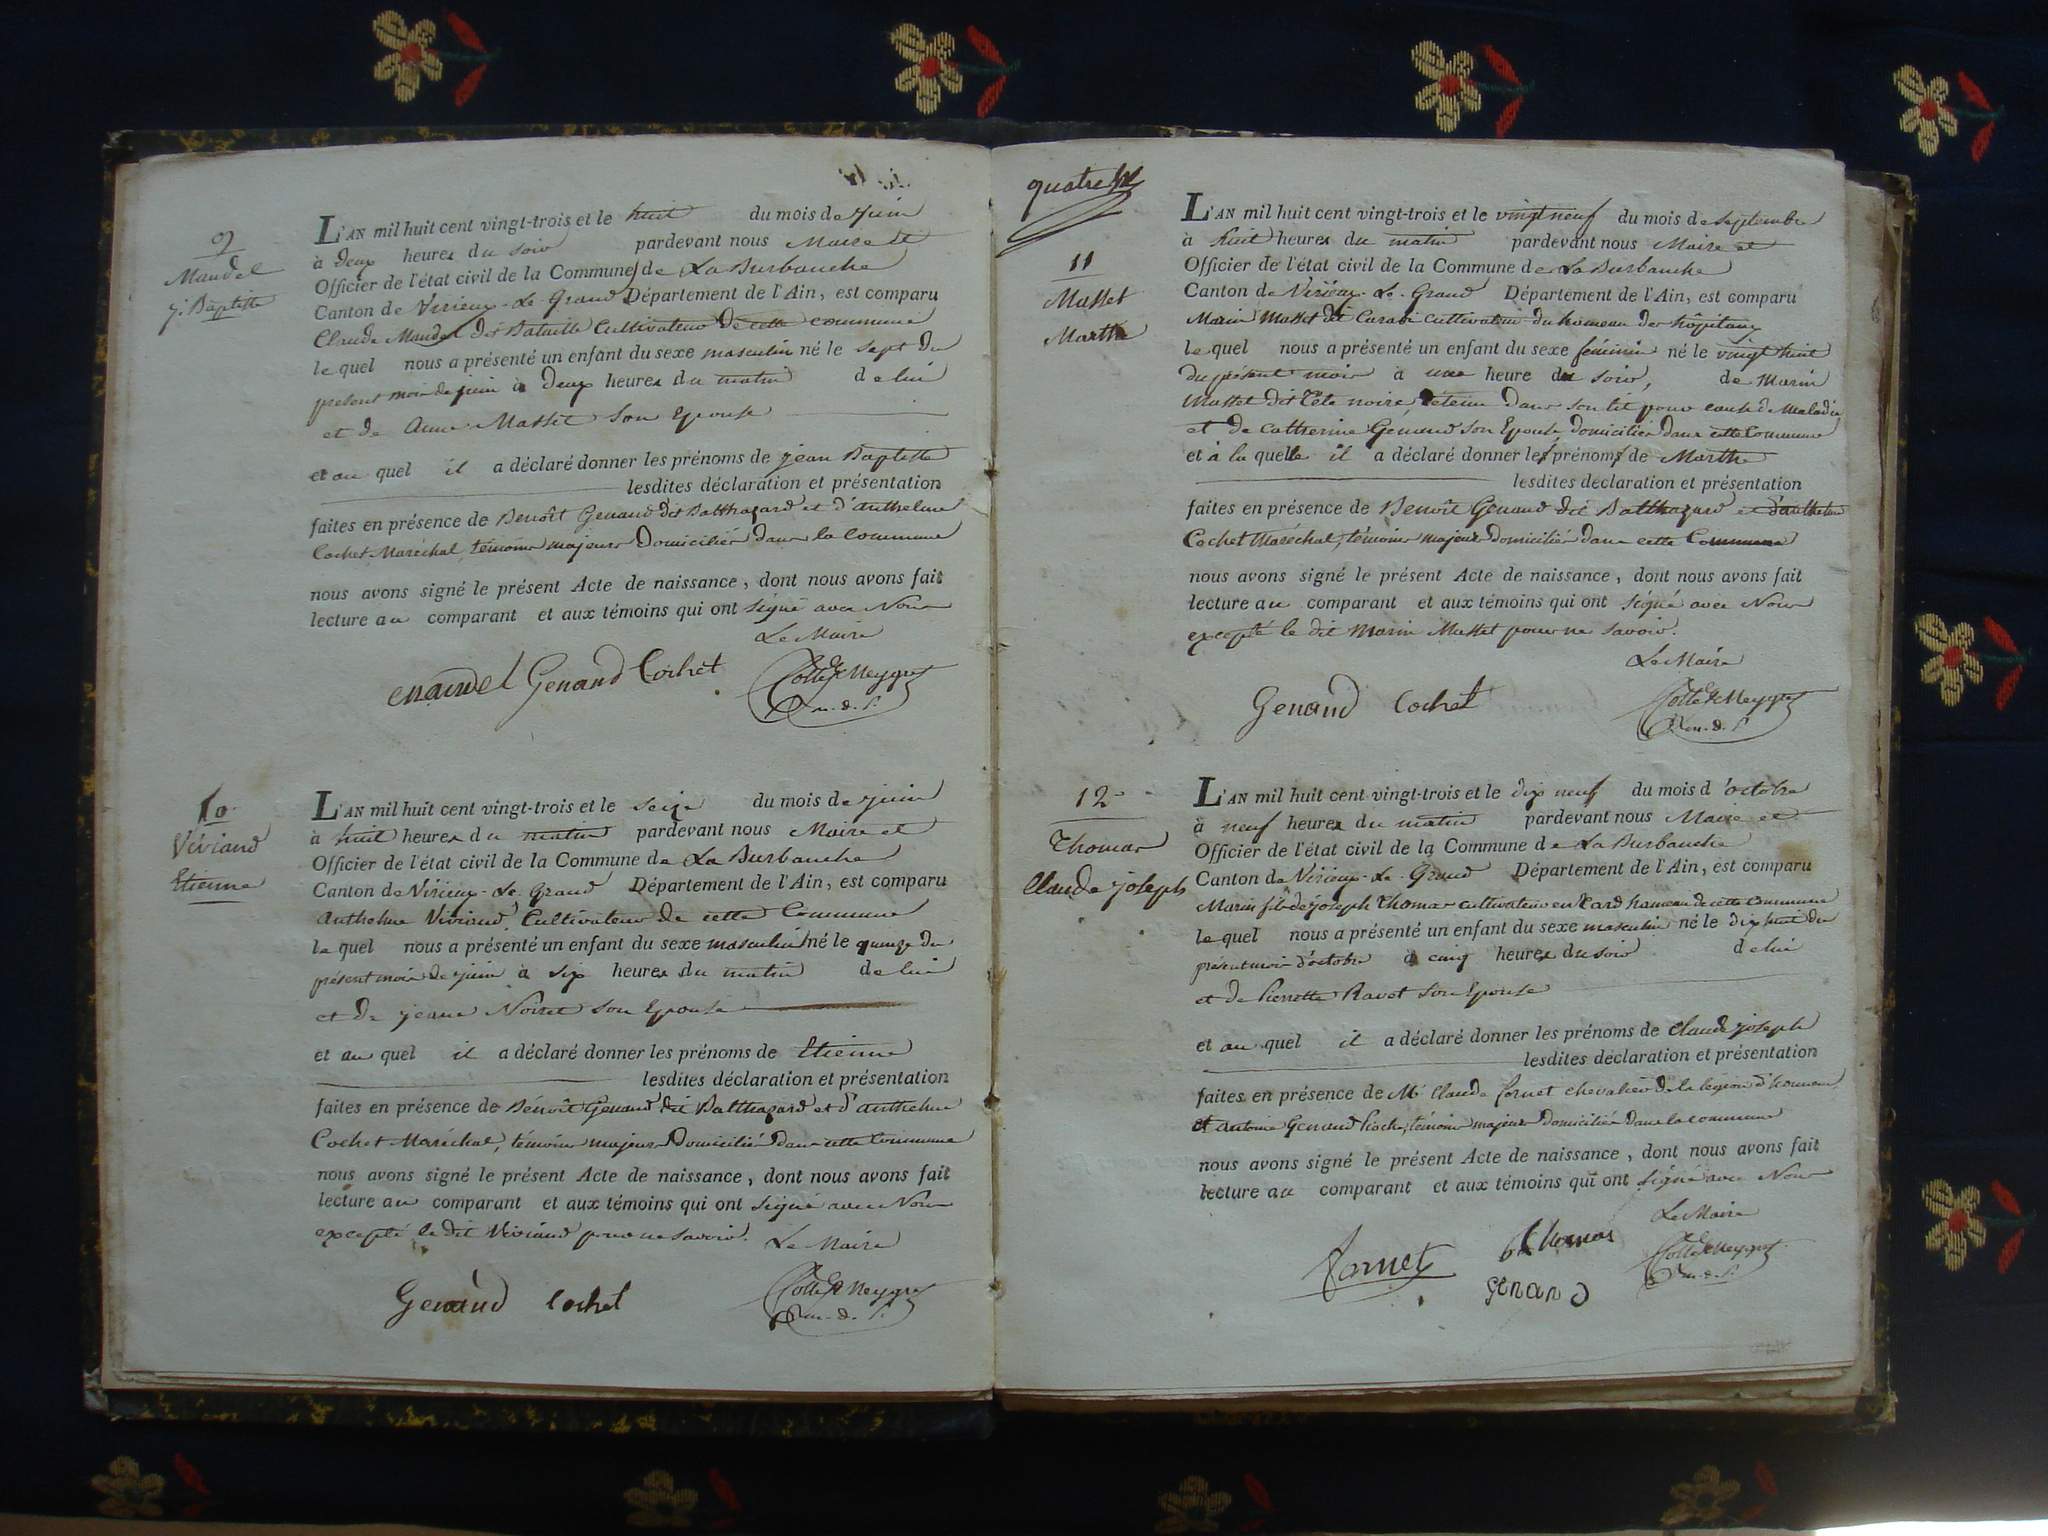 9
Mandel
j. Baptiste
L'AN mil huit cent vingt-trois et le huit du mois de juin
à deux heures du soir pardevant nous Maire et
Officier de l'état civil de la Commune de La Burbanche
Canton de Virieux-Le-Grand Département de l'Ain, est comparu
Claude Mandel dit Bataille Cultivateur de cette commune
lequel nous a présenté un enfant du sexe masculin né le sept du
present mois de juin à deux heures du matin de lui
et de Anne Masset son Epouse
et au quel il a déclaré donner les prénoms de jean Baptiste
lesdites déclaration et présentation
faites en présence de Benoît Genand dit Balthazard et d'anthelme
Cochet Maréchal, témoins majeurs domiciliés dans la commune
nous avons signé le présent Acte de naissance, dont nous avons fait
lecture au comparant et aux témoins qui ont signé avec Nous
Le Maire
mandel Genand Cochet
10
Viviand
Etienne
L'AN mil huit cent vingt-trois et le seize du mois de juin
à huit heures du matin pardevant nous Maire et
Officier de l'état civil de la Commune de La Burbanche
Canton de Virieux-Le-Grand Département de l'Ain, est comparu
Anthelme Viviand, Cultivateur de cette Commune
lequel nous a présenté un enfant du sexe masculin né le quinze du
présent mois de juin à six heures du matin de lui
et de jeane Noiret son Epouse
et au quel il a déclaré donner les prénoms de Etienne
lesdites déclaration et présentation
faites en présence de Bénoît Genand dit Balthazard et d'anthelme
Cochet Maréchal, témoins majeurs domiciliés dans cette Commune
nous avons signé le présent Acte de naissance, dont nous avons fait
lecture au comparant et aux témoins qui ont signé avec Nous
excepté le dit Viviand pour ne savoir.
Le Maire
Genand Cochet
11
Masset
Marthe
L'AN mil huit cent vingt-trois et le vingt neuf du mois de septembre
à huit heures du matin pardevant nous Maire et
Officier de l'état civil de la Commune de La Burbanche
Canton de Virieux-Le-Grand Département de l'Ain, est comparu
Marin Masset dit Carabi cultivateur du hameau des hôpitaux
lequel nous a présenté un enfant du sexe féminin né le vingt huit
du présent mois à une heure du soir, de Marin
Masset dit Tête noire, retenu dans son lit pour cause de Maladie
et de Catherine Genand son Epouse domiciliés dans cette Commune
et à la quelle il a déclaré donner les prénoms de Marthe
lesdites déclaration et présentation
faites en présence de Benoît Genand dit Balthazard et d'anthelme
Cochet Maréchal, témoins majeurs domiciliés dans cette Commune
nous avons signé le présent Acte de naissance, dont nous avons fait
lecture au comparant et aux témoins qui ont signé avec Nous
excepté le dit Marin Masset pour ne savoir.
Le Maire
Genand Cochet
12
Thomas
Claude joseph
L'AN mil huit cent vingt-trois et le dix neuf du mois d'octobre
à neuf heures du matin pardevant nous Maire et
Officier de l'état civil de la Commune de La Burbanche
Canton de Virieux-Le-Grand Département de l'Ain, est comparu
Marin fils de joseph Thomas cultivateur en hameau de cette commune
lequel nous a présenté un enfant du sexe masculin né le dix huit du
présent mois d'octobre à cinq heures du soir de lui
et de Pierrette Ravot son Epouse
et au quel il a déclaré donner les prénoms de claude joseph
lesdites déclaration et présentation
faites en présence de Mr Claude Cornet chevalier de la légion d'honneur
et antoine Genand témoins majeurs domiciliés dans la commune
nous avons signé le présent Acte de naissance, dont nous avons fait
lecture au comparant et aux témoins qui ont signé avec Nous
Le Maire
Cornet thomas
genand